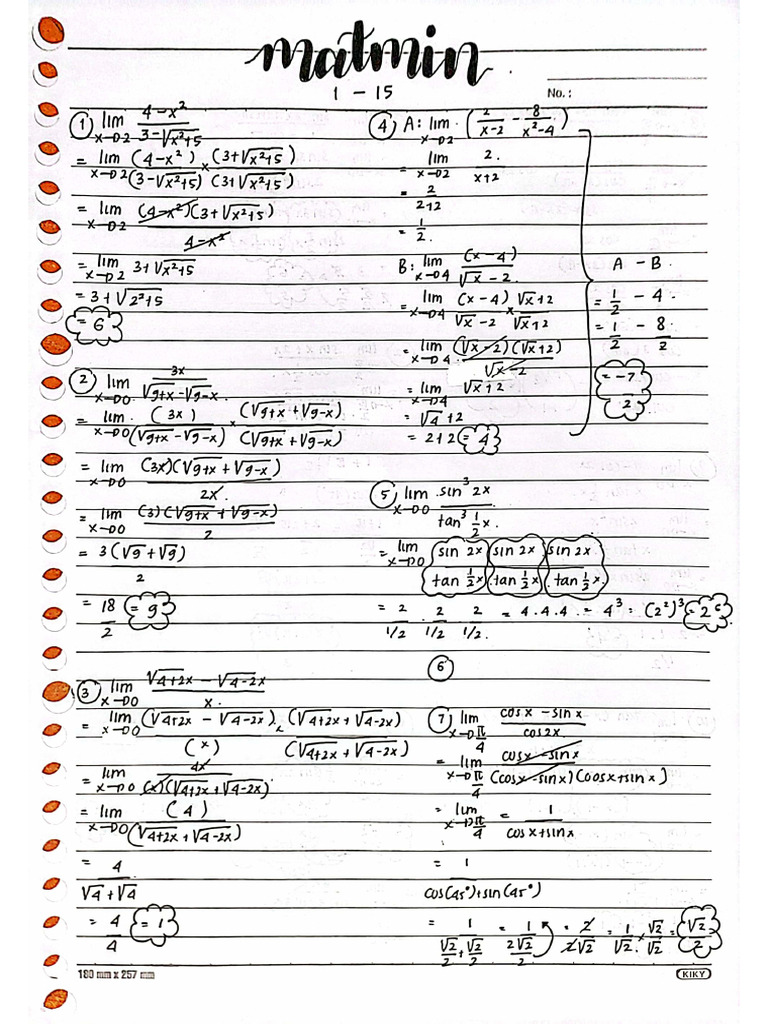 matmin
1 - 15
No.:
① lim x→2 (4-x²)/(3-√(x²+5))
= lim x→2 (4-x²)/(3-√(x²+5)) × (3+√(x²+5))/(3+√(x²+5))
= lim x→2 (4-x²)(3+√(x²+5))/(4-x²)
= lim x→2 3+√(x²+5)
= 3+√(2²+5)
= 6
② lim x→0 3x/(√(9+x)-√(9-x))
= lim x→0 (3x)/(√(9+x)-√(9-x)) × (√(9+x)+√(9-x))/(√(9+x)+√(9-x))
= lim x→0 (3x)(√(9+x)+√(9-x))/2x
= lim x→0 (3)(√(9+x)+√(9-x))/2
= 3(√9+√9)/2
= 18/2 = 9
③ lim x→0 (√(4+2x)-√(4-2x))/x
= lim x→0 (√(4+2x)-√(4-2x))/(x) × (√(4+2x)+√(4-2x))/(√(4+2x)+√(4-2x))
= lim x→0 4x/((x)(√(4+2x)+√(4-2x)))
= lim x→0 (4)/(√(4+2x)+√(4-2x))
= 4/(√4+√4)
= 4/4 = 1
④ A: lim x→2 (2/(x-2) - 8/(x²-4))
= lim x→2 2/(x+2)
= 2/(2+2)
= 1/2.
B: lim x→4 (x-4)/(√x-2)
= lim x→4 (x-4)/(√x-2) × (√x+2)/(√x+2)
= lim x→4 (√x-2)(√x+2)/(√x-2)
= lim x→4 √x+2
= √4+2
= 2+2 = 4
A - B
= 1/2 - 4
= 1/2 - 8/2
= -7/2
⑤ lim x→0 sin³ 2x/tan³ ½x.
= lim x→0 sin 2x/tan ½x . sin 2x/tan ½x . sin 2x/tan ½x
= 2/1/2 . 2/1/2 . 2/1/2 = 4.4.4. = 4³ = (2²)³ = 2⁶
⑥
⑦ lim x→π/4 (cos x - sin x)/cos 2x
= lim x→π/4 (cos x - sin x)/((cos x - sin x)(cos x + sin x))
= lim x→π/4 = 1/(cos x + sin x)
= 1/(cos(45°)+sin(45°))
= 1/(√2/2+√2/2) = 1/(2√2/2) = 2/2√2 = 1/√2 × √2/√2 = √2/2
180 mm x 257 mm
KIKY